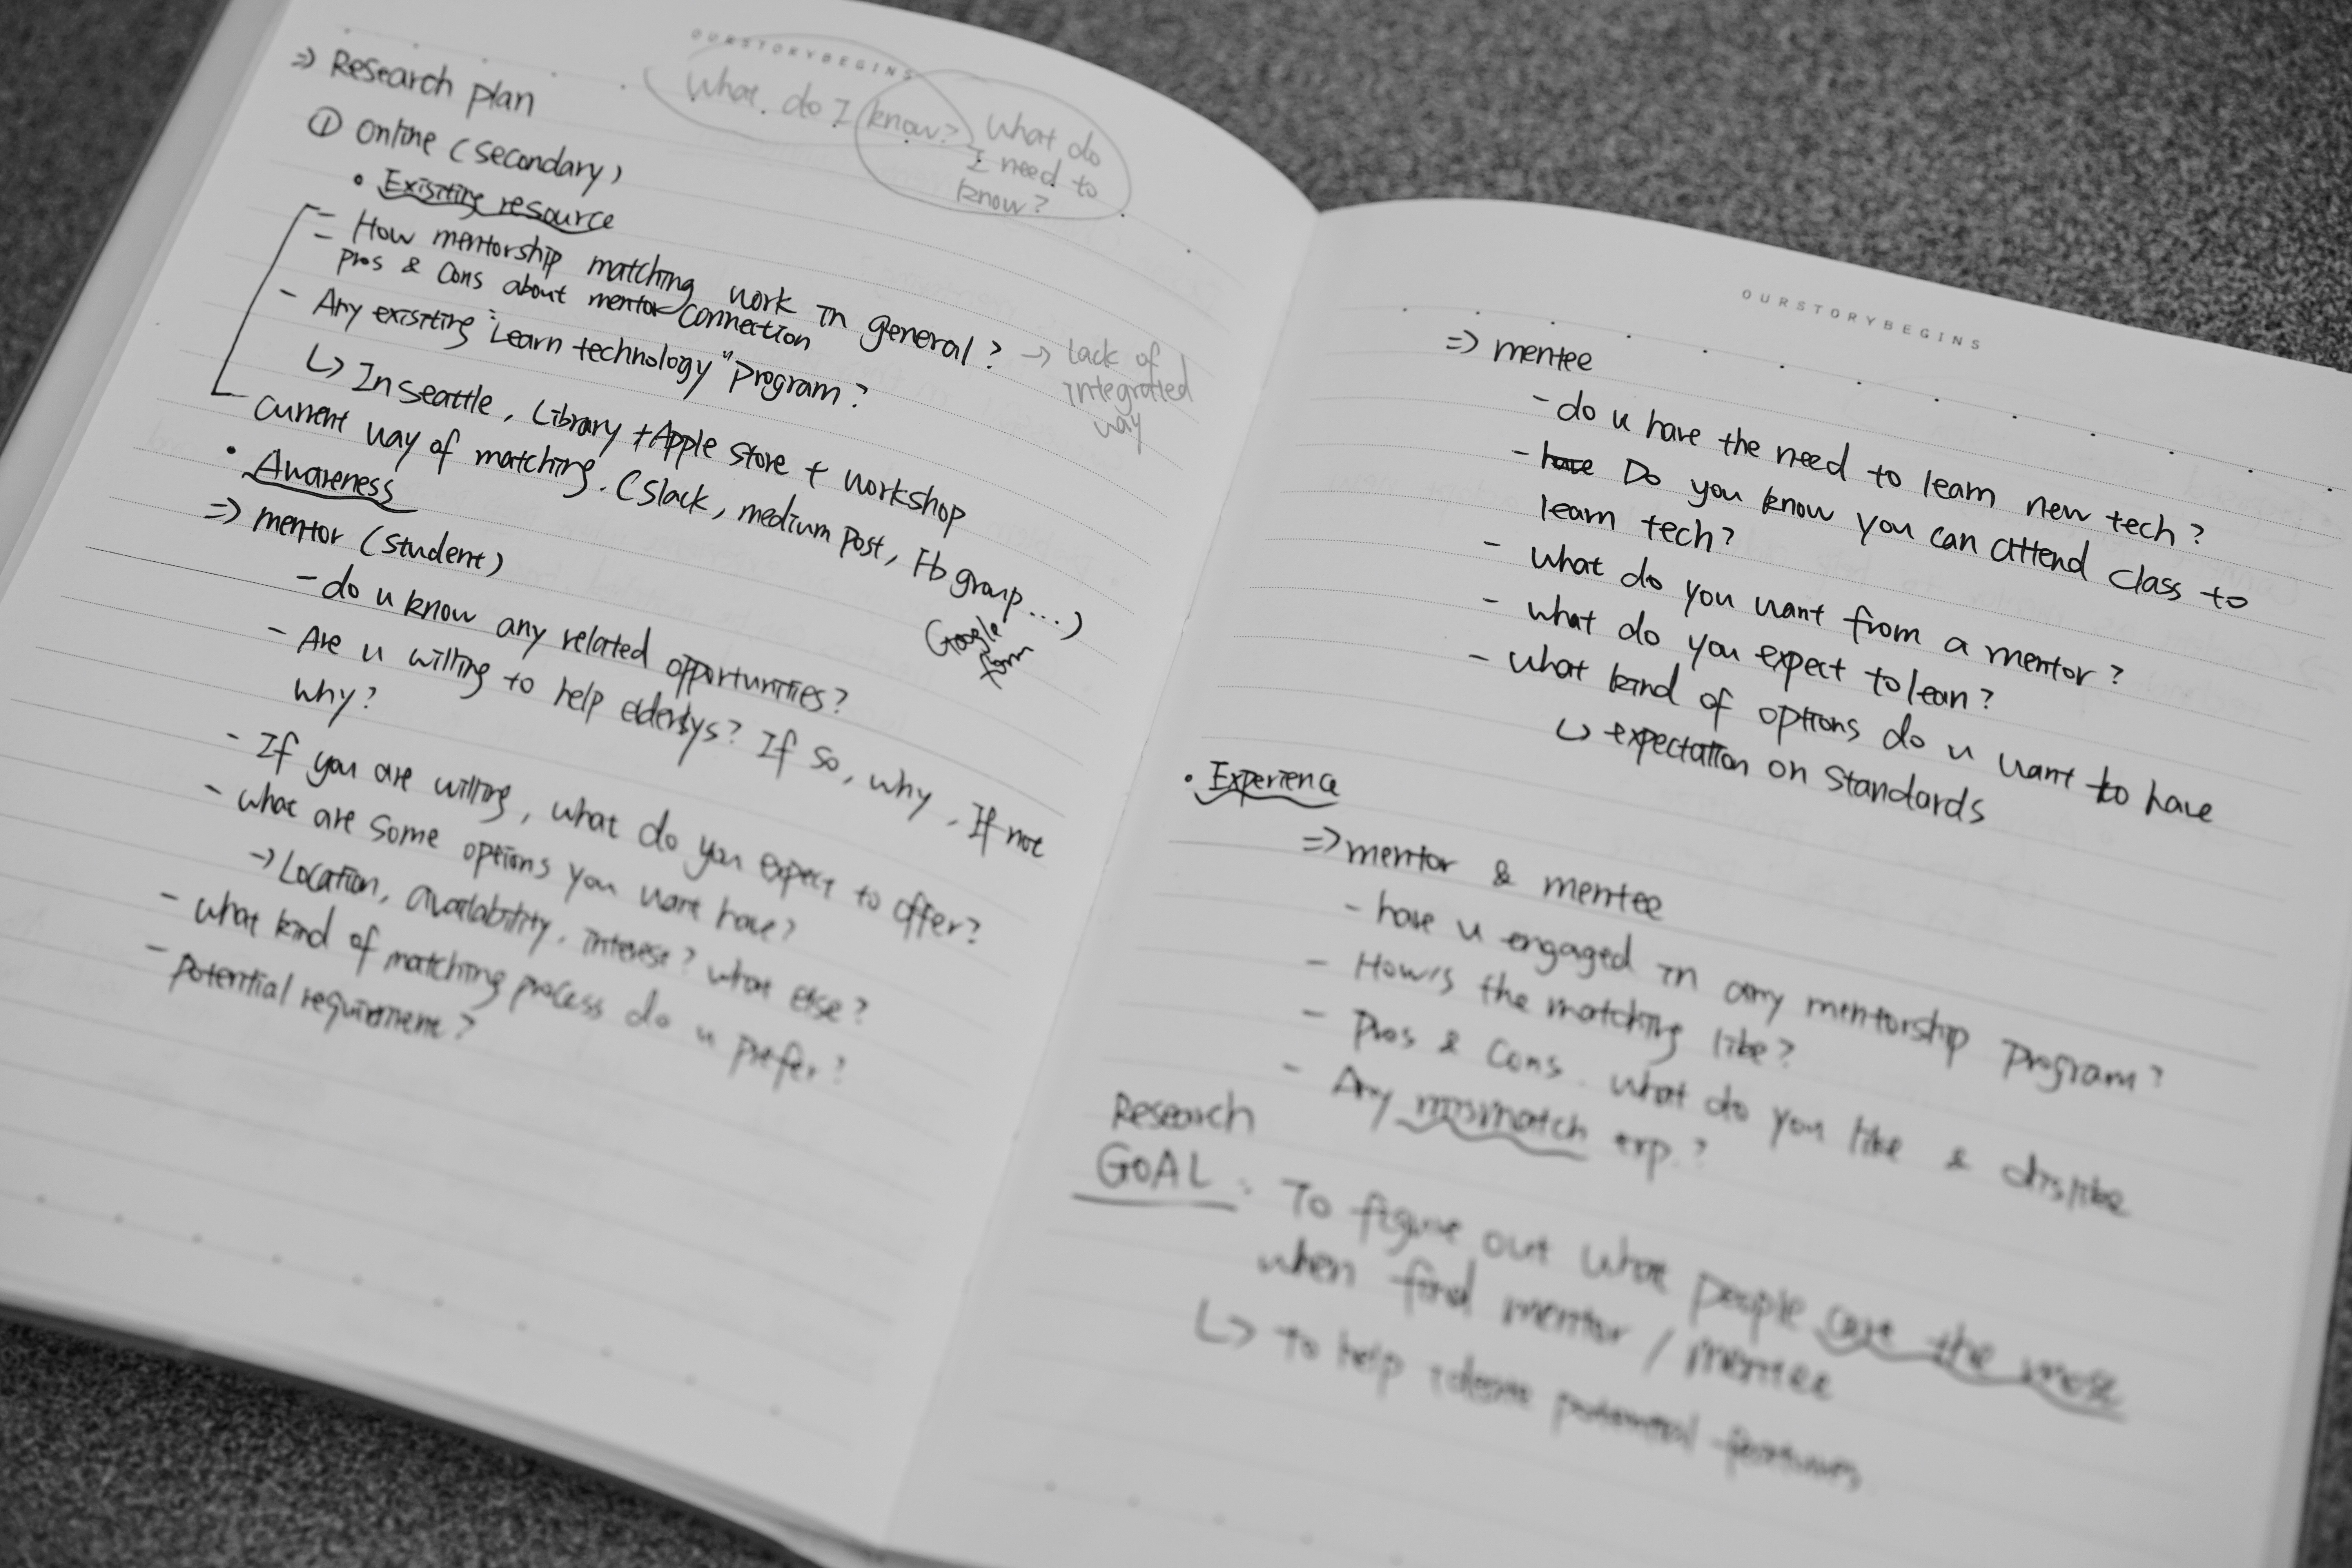 OURSTORYBEGINS
What do I know?
What do
I need to
know?
⇒ Research plan
① Online (secondary)
• Exisiting resource
- How mentorship matching work in general? → lack of
integrated
way
- Pros & Cons about mentor connection
- Any exisiting "Learn technology" program?
↳ In Seattle, Library + Apple Store + workshop
Current way of matching. (Slack, medium post, Fb group...)
Google
form
• Awareness
⇒ mentor (student)
- do u know any related opportunities?
- Are u willing to help elderlys? If so, why. If not
why?
- If you are willing, what do you expect to offer?
- what are some options you want have?
→ Location, availability, interest? what else?
- what kind of matching process do u prefer?
- potential requirement?
OURSTORYBEGINS
⇒ mentee
- do u have the need to learn new tech?
- have Do you know you can attend class to
learn tech?
- what do you want from a mentor?
- what do you expect to lean?
- what kind of options do u want to have
↳ expectation on standards
• Experience
⇒ mentor & mentee
- have u engaged in any mentorship program?
- How's the matching like?
- Pros & Cons. what do you like & dislike
- Any mismatch exp.?
Research
GOAL: To figure out what people care the most
when find mentor / mentee
↳ to help ideate potential features